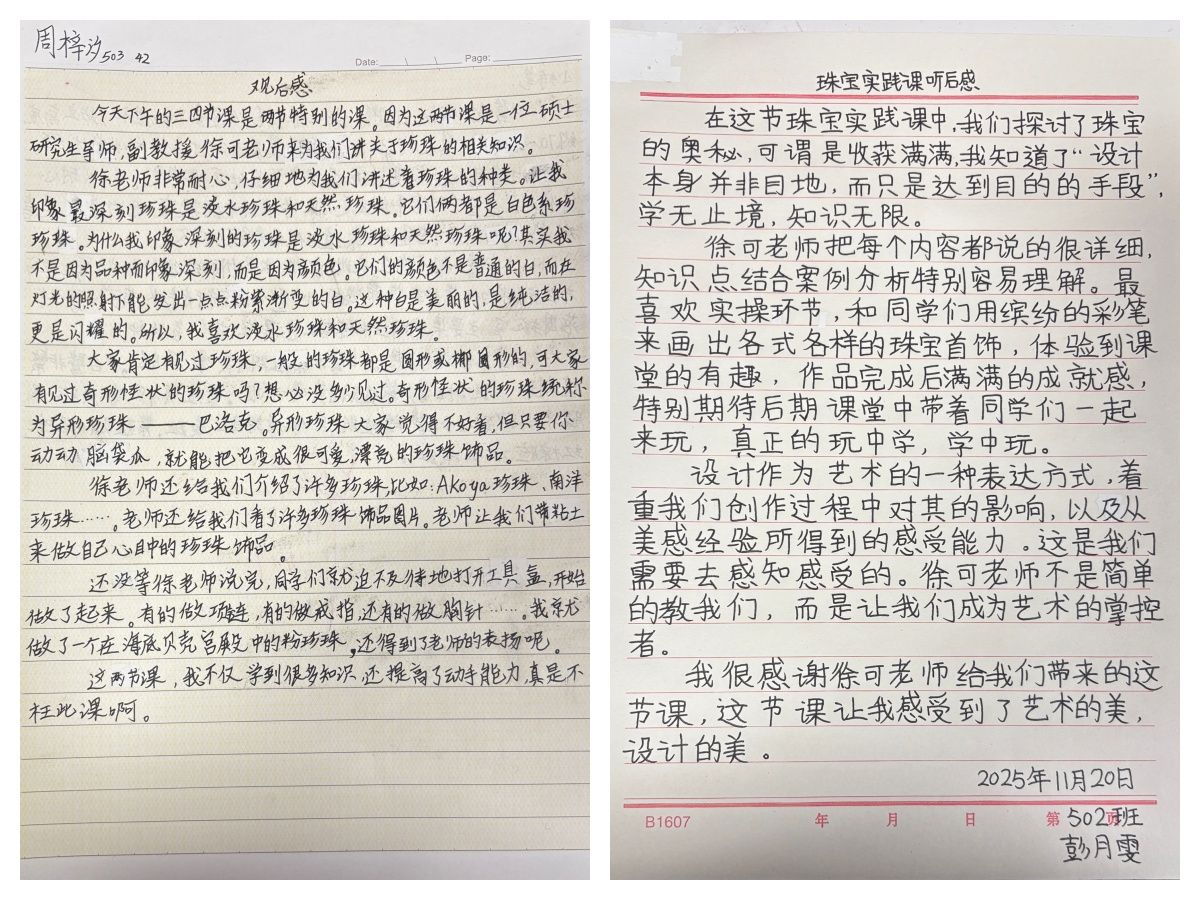 周梓汐 503 42
Date: Page:
观后感
今天下午的三四节课是两节特别的课。因为这两节课是一位硕士
研究生导师，副教授徐可老师来为我们讲关于珍珠的相关知识。
徐老师非常耐心，仔细地为我们讲述着珍珠的种类。让我
印象最深刻珍珠是淡水珍珠和天然珍珠。它们俩者都是白色系珍
珍珠。为什么我印象深刻的珍珠是淡水珍珠和天然珍珠呢？其实我
不是因为品种而印象深刻，而是因为颜色。它们的颜色不是普通的白，而在
灯光的照射下能发出一点点粉紫渐变的白。这种白是美丽的，是纯洁的，
更是闪耀的。所以，我喜欢淡水珍珠和天然珍珠。
大家肯定有见过珍珠，一般的珍珠都是圆形或椭圆形的，可大家
有见过奇形怪状的珍珠吗？想必没多少见过。奇形怪状的珍珠统称
为异形珍珠——巴洛克。异形珍珠大家觉得不好看，但只要你
动动脑袋瓜，就能把它变成很可爱，漂亮的珍珠饰品。
徐老师还给我们介绍了许多珍珠，比如：Akoya珍珠、南洋
珍珠……。老师还给我们看了许多珍珠饰品图片。老师让我们带粘土
来做自己心目中的珍珠饰品。
还没等徐老师说完，同学们就迫不及待地打开工具盒，开始
做了起来。有的做项链，有的做戒指，还有的做胸针……。我就
做了一个在海底贝壳宫殿中的粉珍珠，还得到了老师的表扬呢。
这两节课，我不仅学到很多知识，还提高了动手能力，真是不
枉此课啊。
珠宝实践课听后感
在这节珠宝实践课中，我们探讨了珠宝
的奥秘，可谓是收获满满，我知道了“设计
本身并非目地，而只是达到目的的手段”，
学无止境，知识无限。
徐可老师把每个内容都说的很详细，
知识点结合案例分析特别容易理解。最
喜欢实操环节，和同学们用缤纷的彩笔
来画出各式各样的珠宝首饰，体验到课
堂的有趣，作品完成后满满的成就感，
特别期待后期课堂中带着同学们一起
来玩，真正的玩中学，学中玩。
设计作为艺术的一种表达方式，着
重我们创作过程中对其的影响，以及从
美感经验所得到的感受能力。这是我们
需要去感知感受的。徐可老师不是简单
的教我们，而是让我们成为艺术的掌控
者。
我很感谢徐可老师给我们带来的这
节课，这节课让我感受到了艺术的美，
设计的美。
2025年11月20日
B1607 年 月 日 第 页
502班
彭月雯